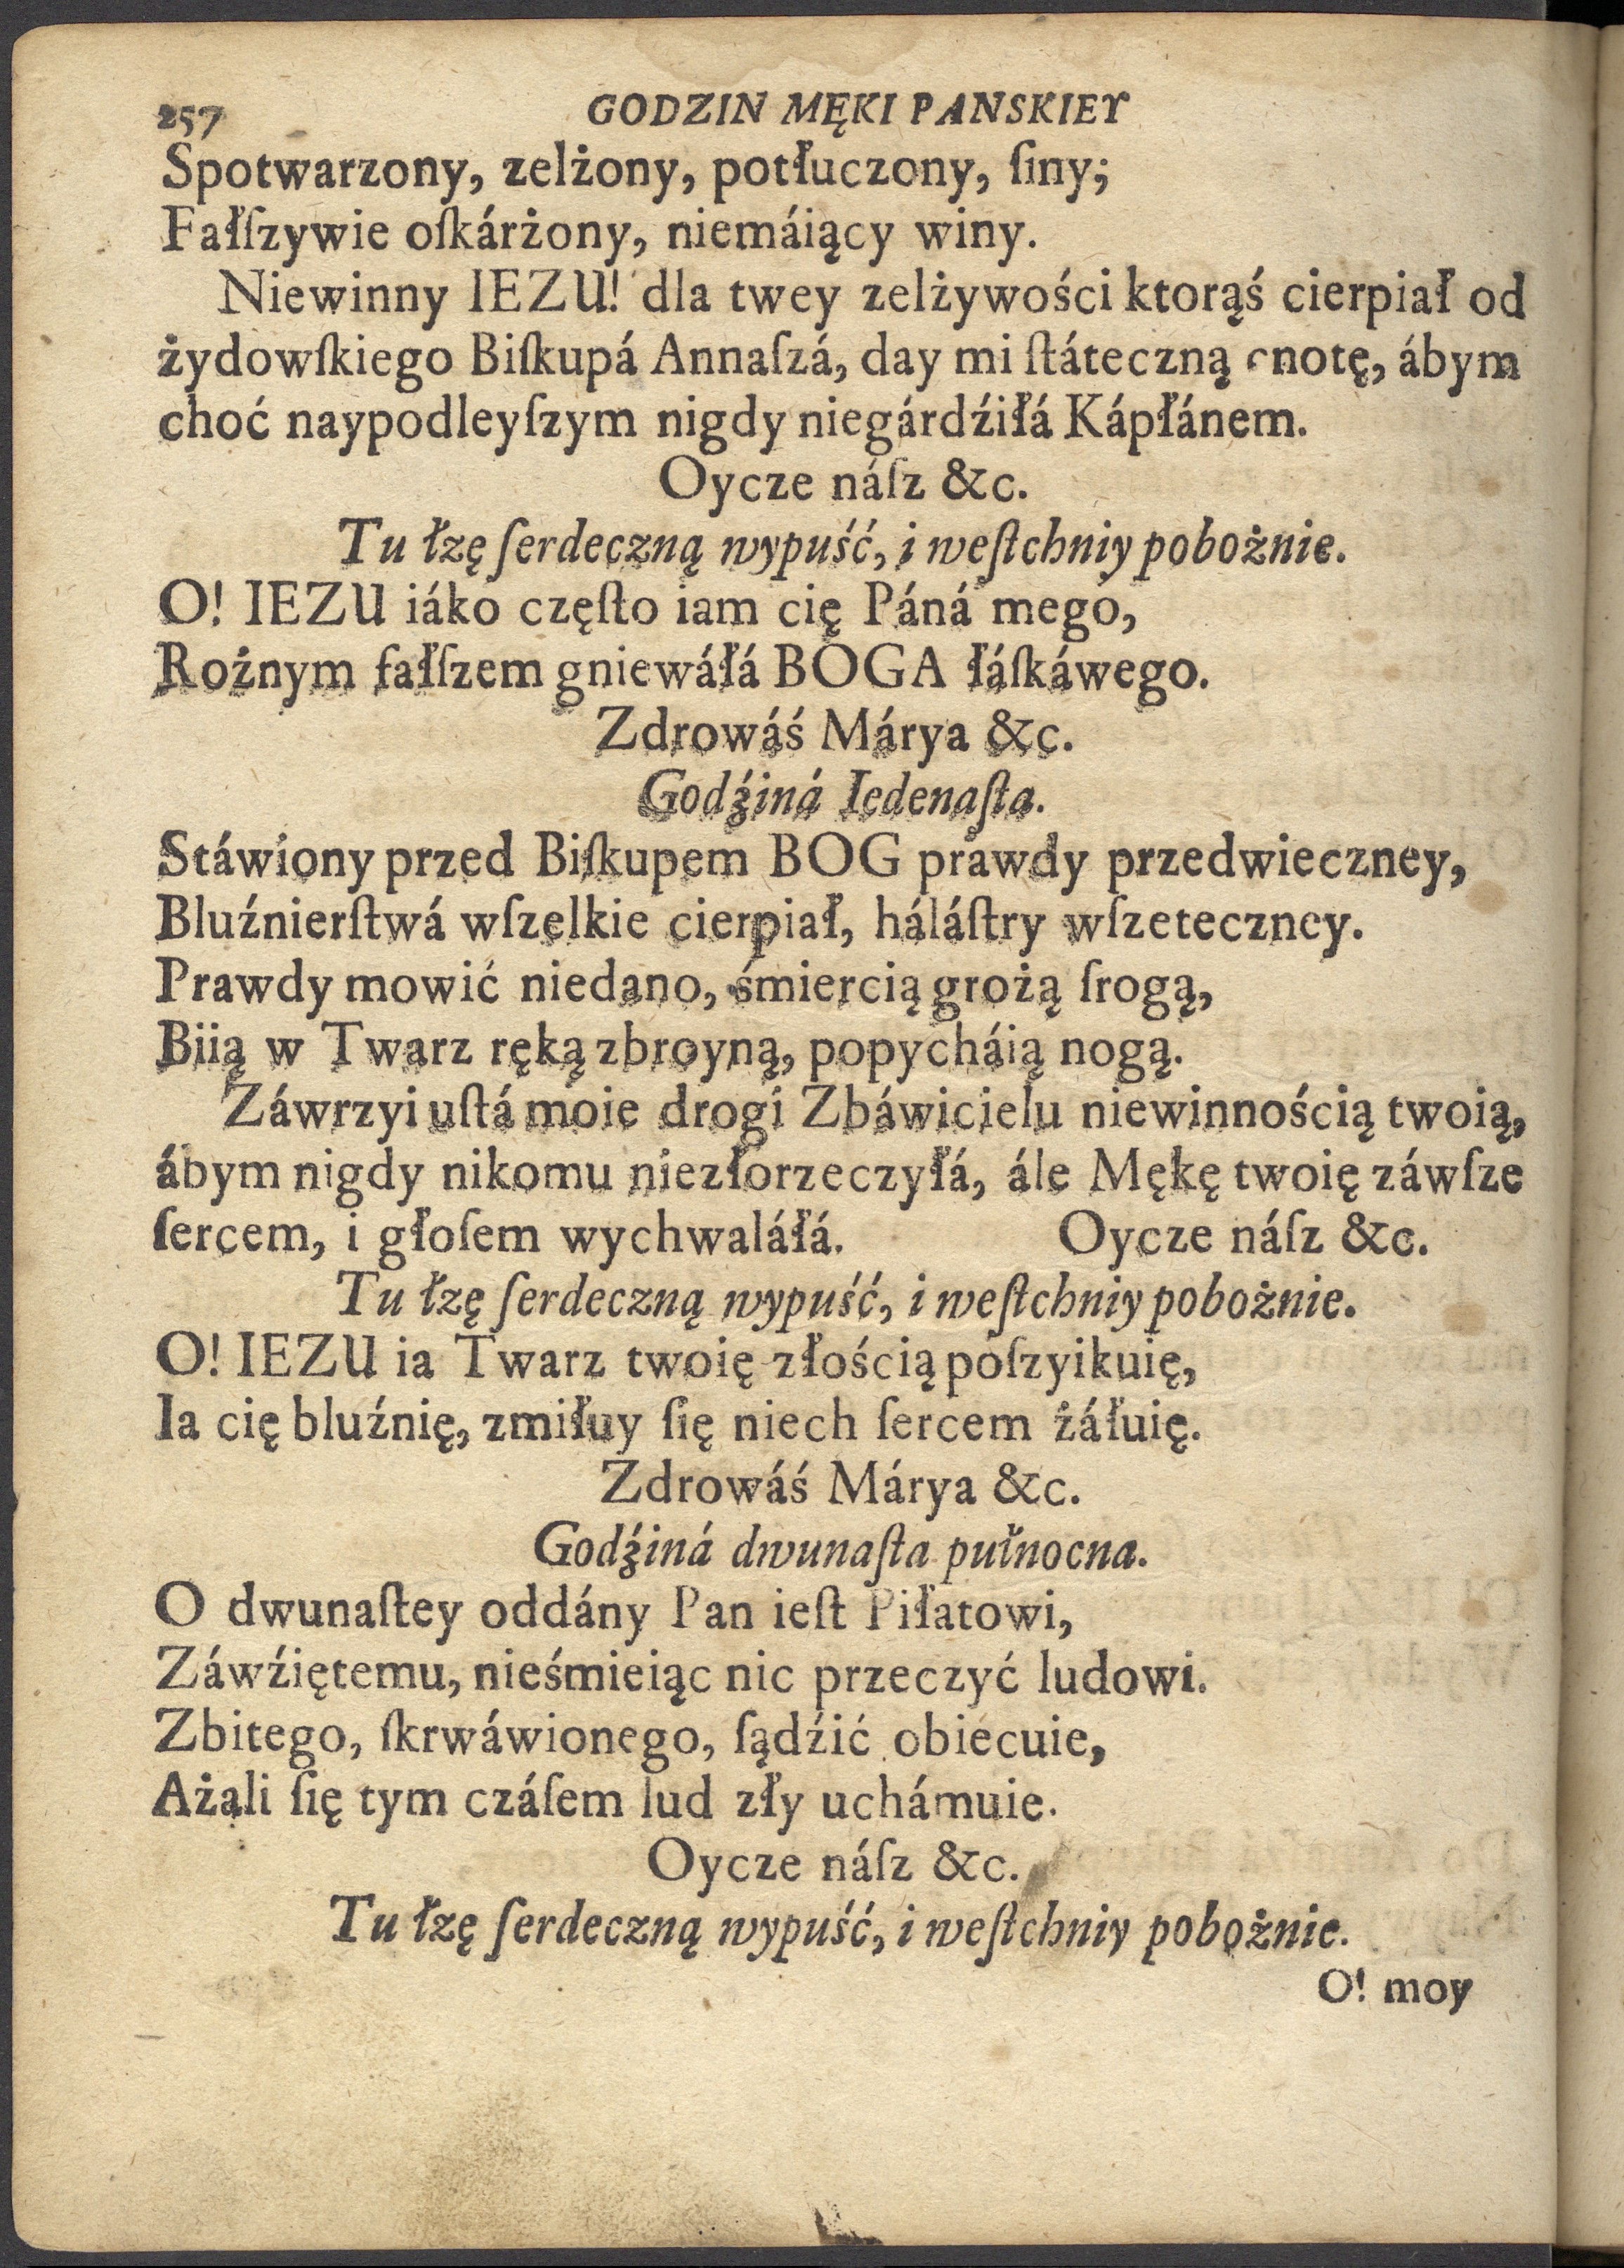 257 GODZIN MĘKI PANSKIEY
Spotwarzony, zelżony, potłuczony, ſiny;
Fałſzywie oſkárżony, niemáiący winy.
Niewinny IEZU! dla twey zelżywości ktorąś cierpiał od
żydowſkiego Biſkupá Annaſzá, day mi ſtáteczną cnotę, ábym
choć naypodleyſzym nigdy niegárdźiłá Kápłánem.
Oycze náſz &c.
Tu łzę ſerdeczną wypuść, i weſtchniy pobożnie.
O! IEZU iáko częſto iam cię Páná mego,
Rożnym fałſzem gniewáłá BOGA łáſkáwego.
Zdrowáś Márya &c.
Godźiná Iedenaſta.
Stáwiony przed Biſkupem BOG prawdy przedwieczney,
Bluźnierſtwá wſzelkie cierpiał, háláſtry wſzeteczney.
Prawdy mowić niedano, śmiercią grożą ſrogą,
Biią w Twarz ręką zbroyną, popycháią nogą.
Záwrzyi uſtá moie drogi Zbáwicielu niewinnością twoią,
ábym nigdy nikomu niezłorzeczyłá, ále Mękę twoię záwſze
ſercem, i głoſem wychwaláłá. Oycze náſz &c.
Tu łzę ſerdeczną wypuść, i weſtchniy pobożnie.
O! IEZU ia Twarz twoię złością poſzyikuię,
Ia cię bluźnię, zmiłuy ſię niech ſercem żáłuię.
Zdrowáś Márya &c.
Godźiná dwunaſta pułnocna.
O dwunaſtey oddány Pan ieſt Piłatowi,
Záwźiętemu, nieśmieiąc nic przeczyć ludowi.
Zbitego, ſkrwáwionego, ſądźić obiecuie,
Ażali ſię tym czáſem lud zły uchámuie.
Oycze náſz &c.
Tu łzę ſerdeczną wypuść, i weſtchniy pobożnie.
O! moy